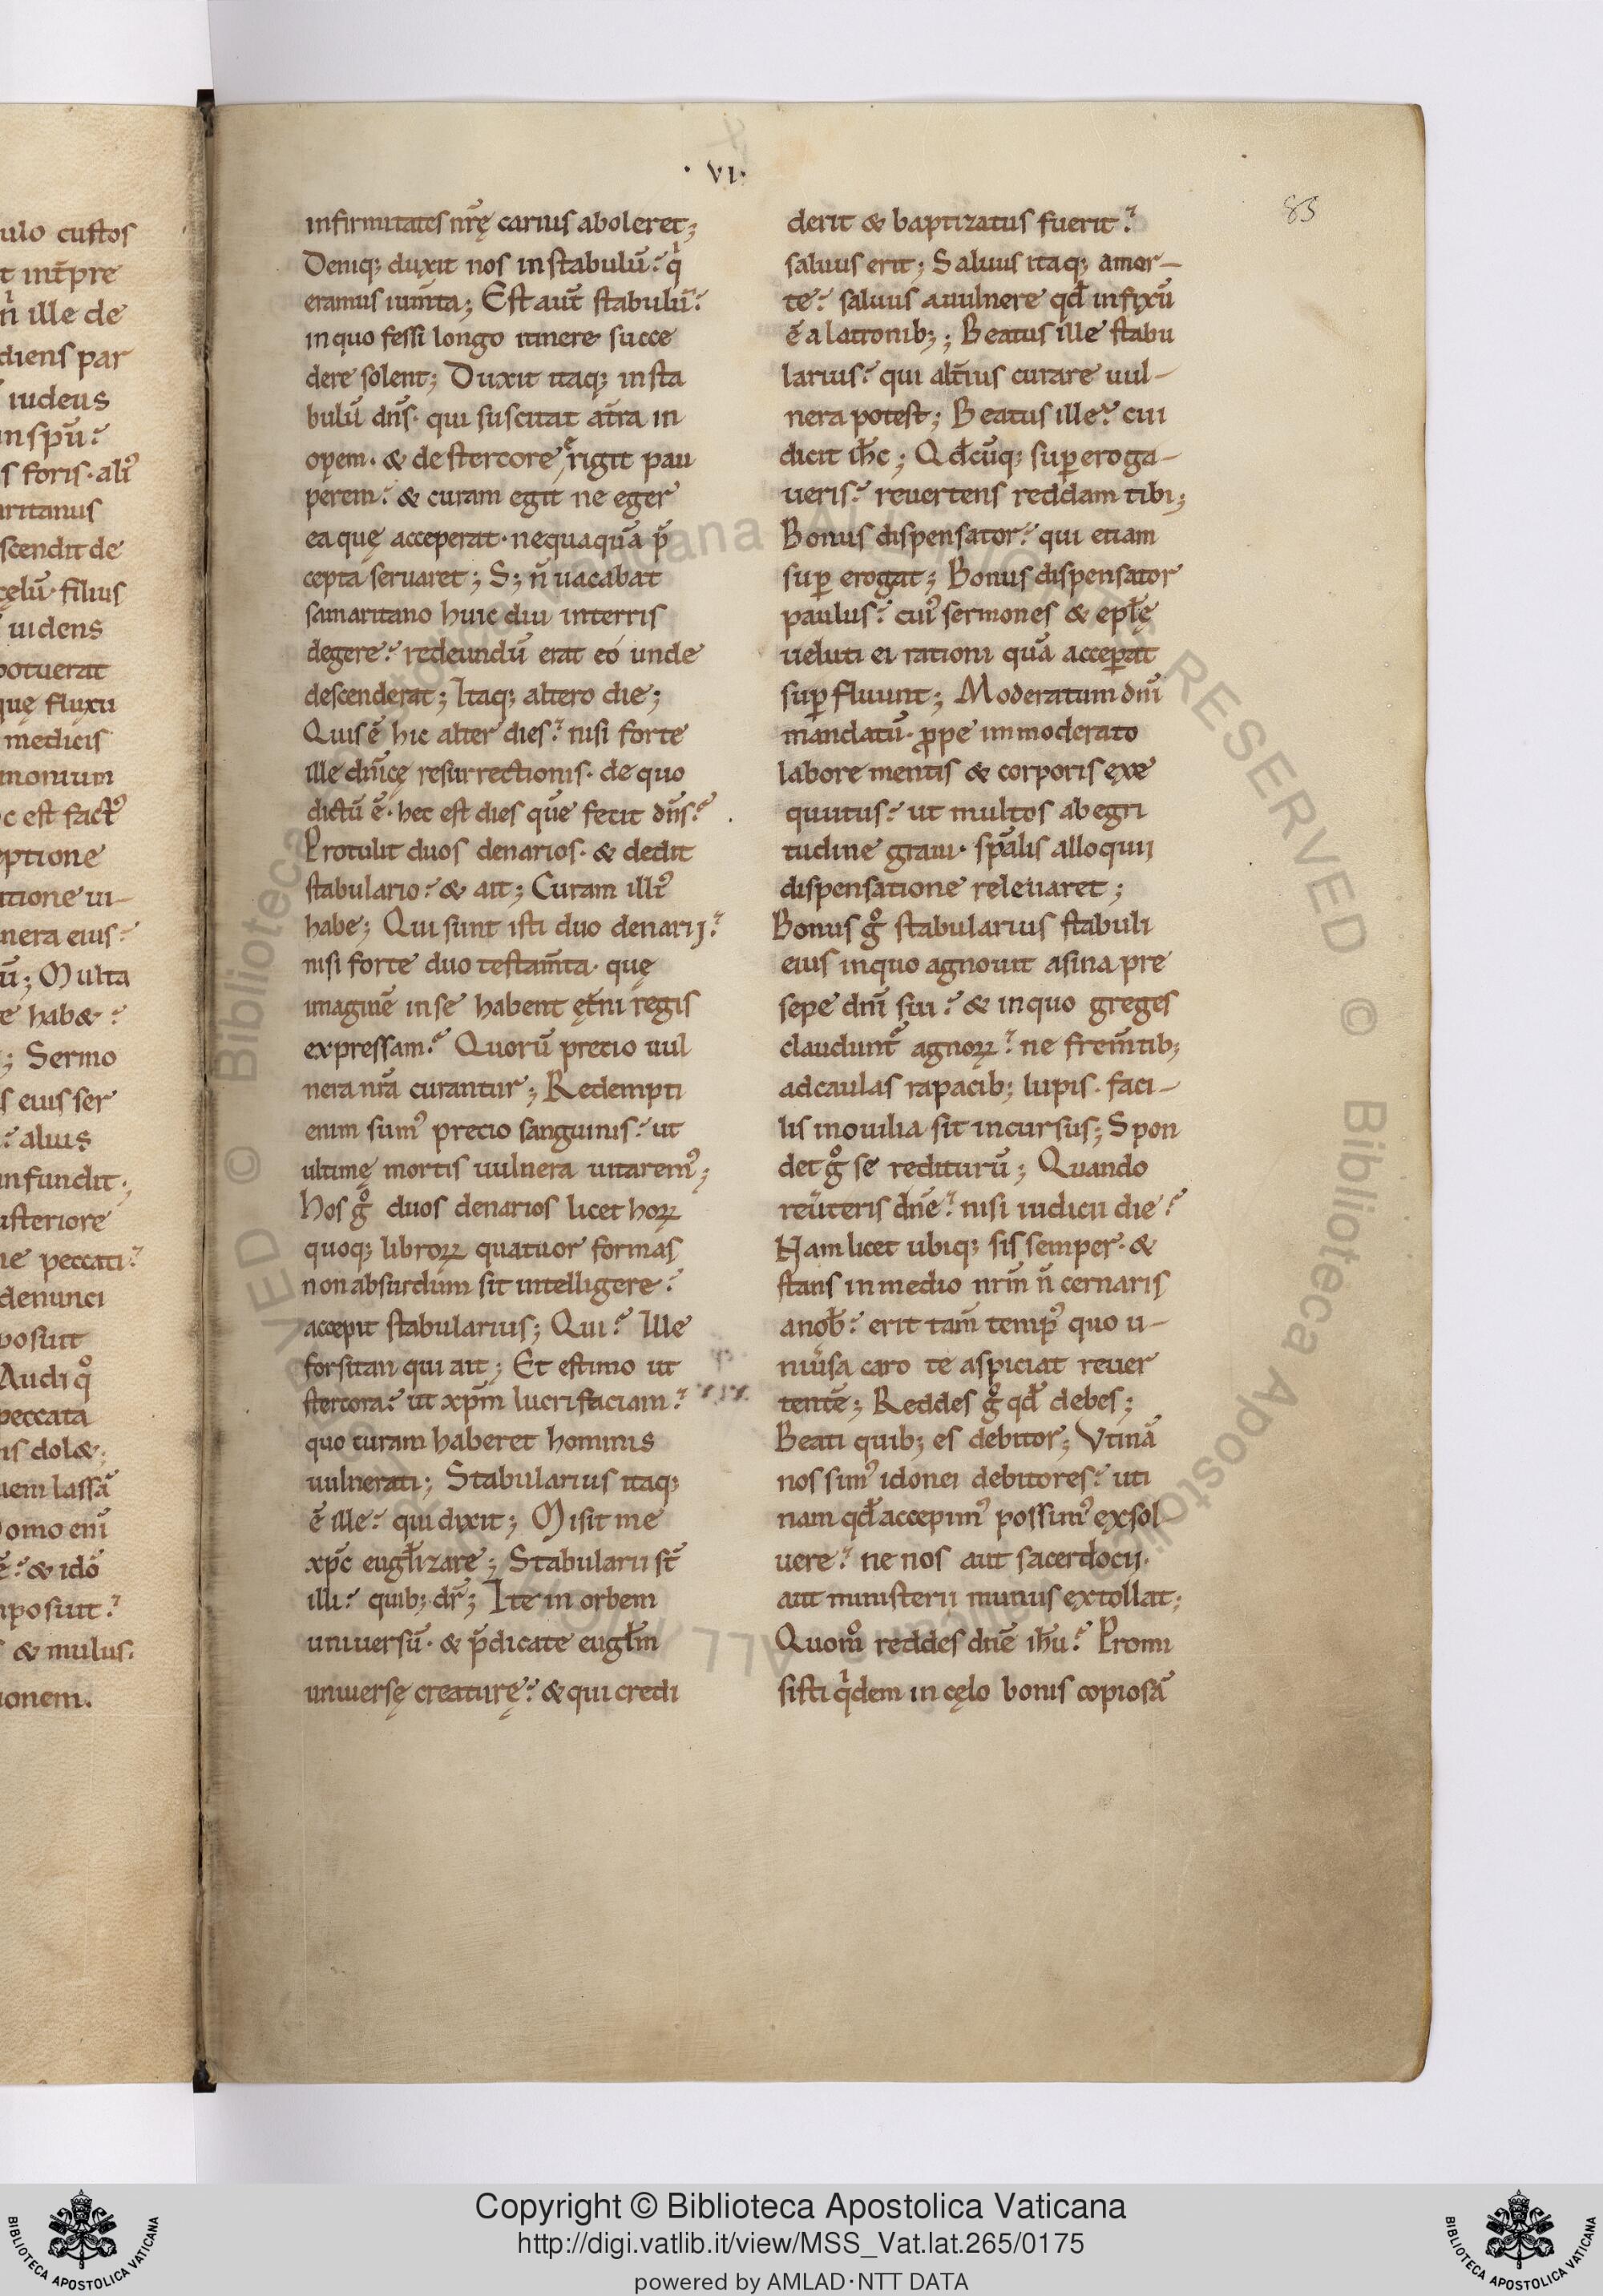 ulo custos
t int̄pre
n̄ ille de
diens par
iudeus
in spū.
s foris. alr̄
aritanus
scendit de
cęlū. filius
uidens
potuerat
quę fluxu
medicis
monium
c est fact᷒
eptione
tatione ui-
nera eius.
ū; Multa
e hab&
; Sermo
s eius ser
alius
infundit.;
usteriore
ne peccati.
denunci
posuit
Audi qͦ
peccata
is dol&;
uem lassā
omo eni
ē. & ido
posuit.
& mulus.
ionem.
· VI ·
83
infirmitates nr̄ę carius aboleret;
Deniq; duxit nos in stabulū. qͥ
eramus ium̄ta; Est aut̄ stabulū.
in quo fessi longo itinere succe
dere solent; Duxit itaq; in sta
bulū dn̄s. qui suscitat a tr̄a in
opem. & de stercore erigit pau
perem. & curam egit ne eger
ea quę acceperat. nequaquā p̄
cepta seruaret; S; n̄ uacabat
samaritano huic diu in terris
degere. redeundū erat eo unde
descenderat; Itaq; altero die;
Quis ē hic alter dies. nisi forte
ille dn̄icę resurrectionis. de quo
dictū ē. hec est dies quē fecit dn̄s.
Protulit duos denarios. & dedit
stabulario. & ait; Curam illi᷒
habe; Qui sunt isti duo denarij.
nisi forte duo testam̄ta. quę
imaginē in se habent ęt̄ni regis
expressam. Quorū precio uul
nera nr̄a curantur; Redempti
enim sum᷒ precio sanguinis. ut
ultimę mortis uulnera uitarem᷒;
Hos gͦ duos denarios licet hoꝝ
quoq; libroꝝ quatuor formas
non absurdum sit intelligere.
accepit stabularius; Qui. Ille
forsitan qui ait; Et estimo ut
stercora. ut xp̄m lucri faciam.
quo curam haberet hominis
uulnerati; Stabularius itaq;
ē ille. qui dixit; Misit me
xp̄c eugłizare; Stabularii st̄
illi. quib; dr̄; Ite in orbem
uniuersū. & p̄dicate eugłm
uniuersę creaturę. & qui credi
derit & baptizatus fuerit.
saluus erit; Saluus itaq; a mor-
te. saluus a uulnere qd̄ infixū
ē a latronib;; Beatus ille stabu
larius. qui alt̄ius curare uul-
nera potest; Beatus ille. cui
dicit ih̄c; Qd̄cūq; suꝑeroga-
ueris. reuertens reddam tibi;
Bonus dispensator. qui etiam
suꝑ erogat; Bonus dispensator
paulus. cui᷒ sermones & epłę
ueluti ei rationi quā acceꝑat
suꝑfluunt; Moderatum dn̄i
mandatū. ꝓpe immoderato
labore mentis & corporis exe
quutus. ut multos ab egri
tudine graui. sp̄alis alloquii
dispensatione releuaret;
Bonus gͦ stabularius stabuli
eius in quo agnouit asina pre
sepe dn̄i sui. & in quo greges
claudunt᷒ agnoꝝ. ne frem̄tib;
ad caulas rapacib; lupis. faci-
lis in ouilia sit incursus; Spon
det gͦ se rediturū; Quando
reūteris dn̄e. nisi iudicii die.
Nam licet ubiq; sis semper. &
stans in medio nr̄m n̄ cernaris
a nob̄. erit tam̄ temp᷒ quo u-
niūsa caro te aspiciat reuer
tentē; Reddes gͦ qd̄ debes;
Beati quib; es debitor; Vtinā
nos sim᷒ idonei debitores. uti
nam qd̄ accepim᷒ possim᷒ exsol
uere. ne nos aut sacerdocii.
aut ministerii munus extollat;
Quom̊ reddes dn̄e ih̄u. Promi
sisti qͥdem in cęlo bonis copiosā
Copyright © Biblioteca Apostolica Vaticana
http://digi.vatlib.it/view/MSS_Vat.lat.265/0175
powered by AMLAD·NTT DATA
BIBLIOTECA APOSTOLICA VATICANA
BIBLIOTECA APOSTOLICA VATICANA